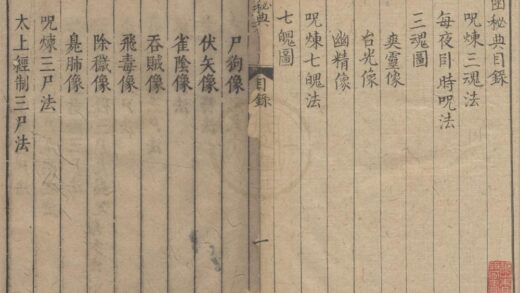 秘典目錄
呪煉三魂法
每夜卧時呪法
三魂圖
爽靈像
台光像
幽精像
呪煉七魄法
七魄圖
秘典
目錄
一
尸狗像
伏矢像
雀陰像
吞賊像
飛毒像
除穢像
臭肺像
呪煉三尸法
太上經制三尸法